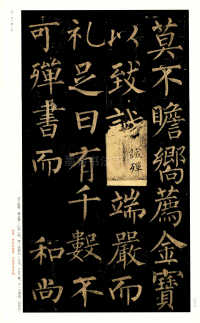 莫不瞻嚮薦金寶
以致誠 端嚴而
礼足日有千數不
可殫書而 和尚